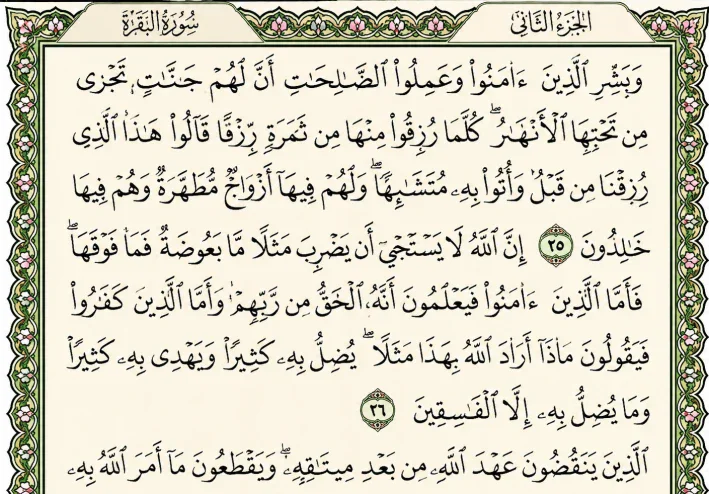 الجزء الثاني
سورة البقرة
وَبَشِّرِ ٱلَّذِينَ ءَامَنُوا۟ وَعَمِلُوا۟ ٱلصَّـٰلِحَـٰتِ أَنَّ لَهُمْ جَنَّـٰتٍ تَجْرِى
مِن تَحْتِهَا ٱلْأَنْهَـٰرُ ۖ كُلَّمَا رُزِقُوا۟ مِنْهَا مِن ثَمَرَةٍ رِّزْقًا قَالُوا۟ هَـٰذَا ٱلَّذِى
رُزِقْنَا مِن قَبْلُ وَأُتُوا۟ بِهِۦ مُتَشَـٰبِهًا ۖ وَلَهُمْ فِيهَآ أَزْوَٰجٌ مُّطَهَّرَةٌ وَهُمْ فِيهَا
خَـٰلِدُونَ ٢٥ إِنَّ ٱللَّهَ لَا يَسْتَحْىِۦٓ أَن يَضْرِبَ مَثَلًا مَّا بَعُوضَةً فَمَا فَوْقَهَا ۖ
فَأَمَّا ٱلَّذِينَ ءَامَنُوا۟ فَيَعْلَمُونَ أَنَّهُ ٱلْحَقُّ مِن رَّبِّهِمْ ۖ وَأَمَّا ٱلَّذِينَ كَفَرُوا۟
فَيَقُولُونَ مَاذَآ أَرَادَ ٱللَّهُ بِهَـٰذَا مَثَلًا ۘ يُضِلُّ بِهِۦ كَثِيرًا وَيَهْدِى بِهِۦ كَثِيرًا
وَمَا يُضِلُّ بِهِۦ إِلَّا ٱلْفَـٰسِقِينَ ٢٦
ٱلَّذِينَ يَنقُضُونَ عَهْدَ ٱللَّهِ مِن بَعْدِ مِيتَـٰقِهِۦ ۖ وَيَقْطَعُونَ مَآ أَمَرَ ٱللَّهُ بِهِۦ